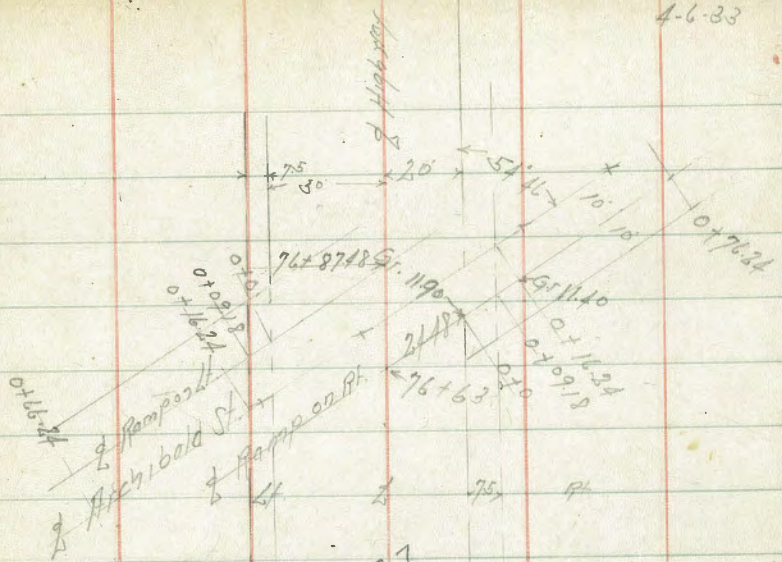 4-6-33
℄ Highway
75
30
20
54° 46'
10'
10'
0+76.24
76+8748
Gr. 11.90
Gr 11.40
0+0
0+09.18
0+16.24
0+66.24
2148
76+63
0+0
0+09.18
0+16.24
℄ Ramp on Lt.
℄ Archibald St.
℄ Ramp on Rt.
Lt
℄
.75
Rt